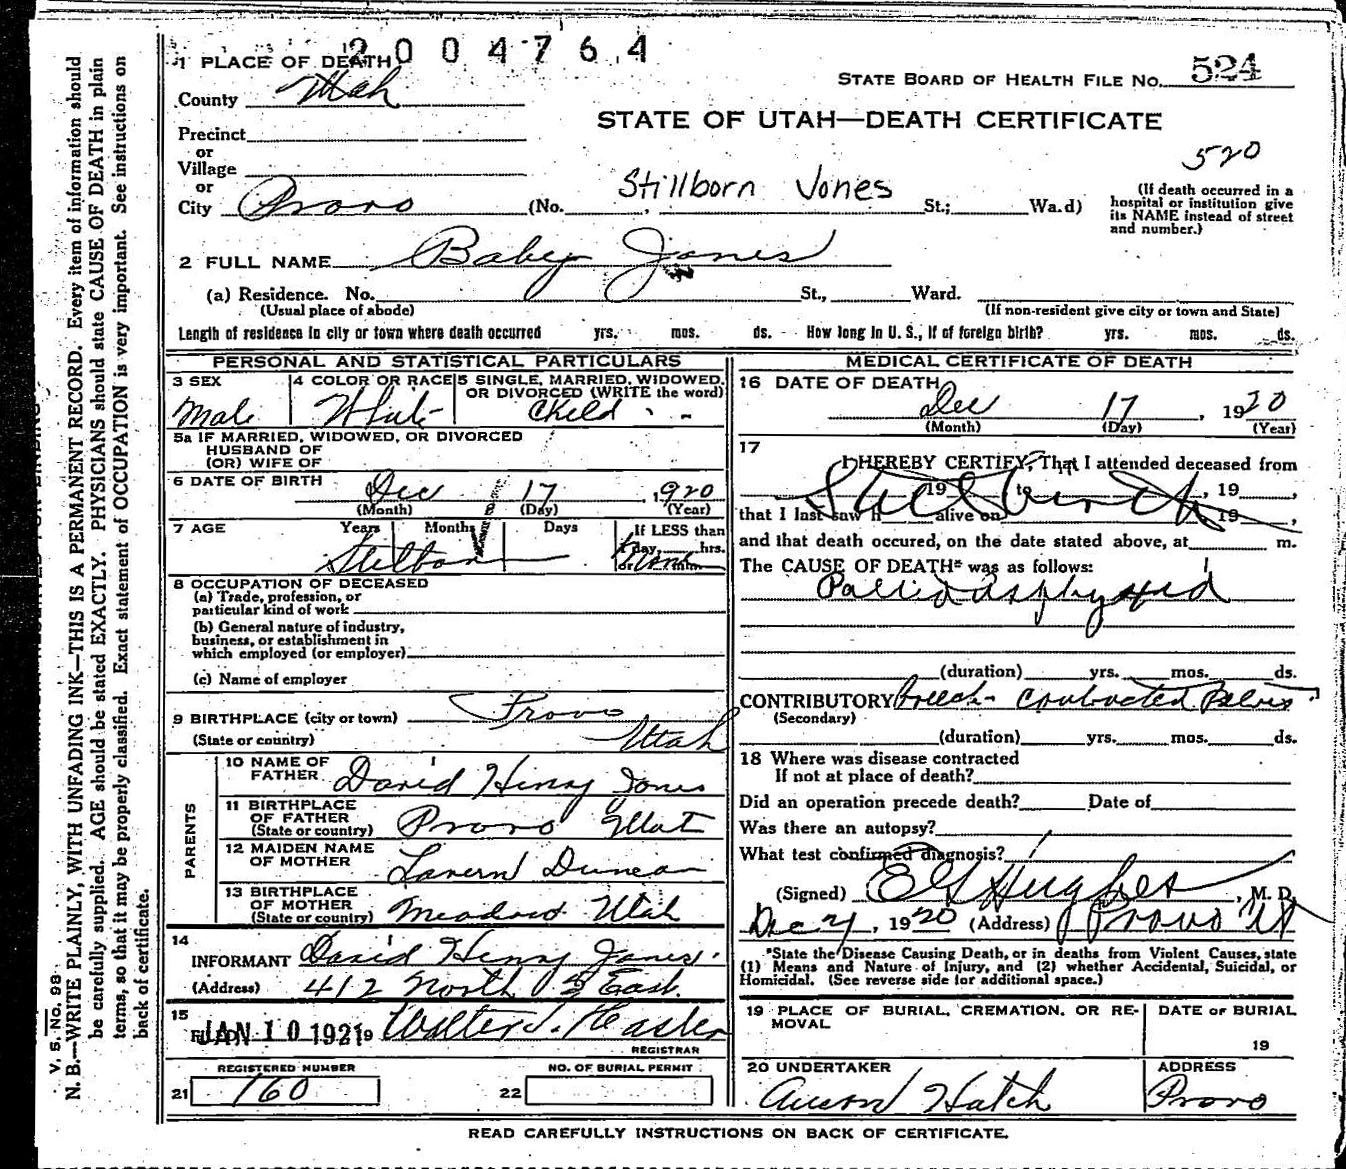 2004764
1 PLACE OF DEATH
STATE BOARD OF HEALTH FILE No. 524
County Utah
STATE OF UTAH—DEATH CERTIFICATE
Precinct
or
Village
520
or
Stillborn Jones
City Provo (No. , St.; Wa.d)
(If death occurred in a
hospital or institution give
its NAME instead of street
and number.)
2 FULL NAME Baby Jones
(a) Residence. No. St., Ward.
(Usual place of abode) (If non-resident give city or town and State)
Length of residence in city or town where death occurred yrs. mos. ds. How long in U. S., if of foreign birth? yrs. mos. ds.
PERSONAL AND STATISTICAL PARTICULARS
3 SEX
Male
4 COLOR OR RACE
White
5 SINGLE, MARRIED, WIDOWED,
OR DIVORCED (WRITE the word)
Child
5a IF MARRIED, WIDOWED, OR DIVORCED
HUSBAND OF
(OR) WIFE OF
6 DATE OF BIRTH Dec 17, 1920
(Month) (Day) (Year)
7 AGE Years Months Days If LESS than
Stilborn 1 day, hrs.
or min.
8 OCCUPATION OF DECEASED
(a) Trade, profession, or
particular kind of work
(b) General nature of industry,
business, or establishment in
which employed (or employer)
(c) Name of employer
9 BIRTHPLACE (city or town) Provo
(State or country) Utah
PARENTS
10 NAME OF
FATHER David Henry Jones
11 BIRTHPLACE
OF FATHER
(State or country) Provo Utah
12 MAIDEN NAME
OF MOTHER Lavern Duncan
13 BIRTHPLACE
OF MOTHER
(State or country) Meadow Utah
14
INFORMANT David Henry Jones
(Address) 412 North 5 East.
15
FILED JAN 10 1921 19 Walter T. Hasler
REGISTRAR
REGISTERED NUMBER
21 160
NO. OF BURIAL PERMIT
22
MEDICAL CERTIFICATE OF DEATH
16 DATE OF DEATH
Dec 17, 1920
(Month) (Day) (Year)
17
I HEREBY CERTIFY, That I attended deceased from
Stillbirth
19 to , 19 ,
that I last saw h alive on 19 ,
and that death occured, on the date stated above, at m.
The CAUSE OF DEATH* was as follows:
Pallid asphyxia
(duration) yrs. mos. ds.
CONTRIBUTORY Breech - Contracted Pelvis
(Secondary)
(duration) yrs. mos. ds.
18 Where was disease contracted
If not at place of death?
Did an operation precede death? Date of
Was there an autopsy?
What test confirmed diagnosis?
(Signed) E G Hughes, M. D.
Dec , 1920 (Address) Provo Ut
*State the Disease Causing Death, or in deaths from Violent Causes, state
(1) Means and Nature of Injury, and (2) whether Accidental, Suicidal, or
Homicidal. (See reverse side for additional space.)
19 PLACE OF BURIAL, CREMATION, OR RE-
MOVAL
DATE OF BURIAL
19
20 UNDERTAKER
Anson Hatch
ADDRESS
Provo
READ CAREFULLY INSTRUCTIONS ON BACK OF CERTIFICATE.
V. S. No. 98
N. B.—WRITE PLAINLY, WITH UNFADING INK—THIS IS A PERMANENT RECORD. Every item of information should
be carefully supplied. AGE should be stated EXACTLY. PHYSICIANS should state CAUSE OF DEATH in plain
terms, so that it may be properly classified. Exact statement of OCCUPATION is very important. See instructions on
back of certificate.